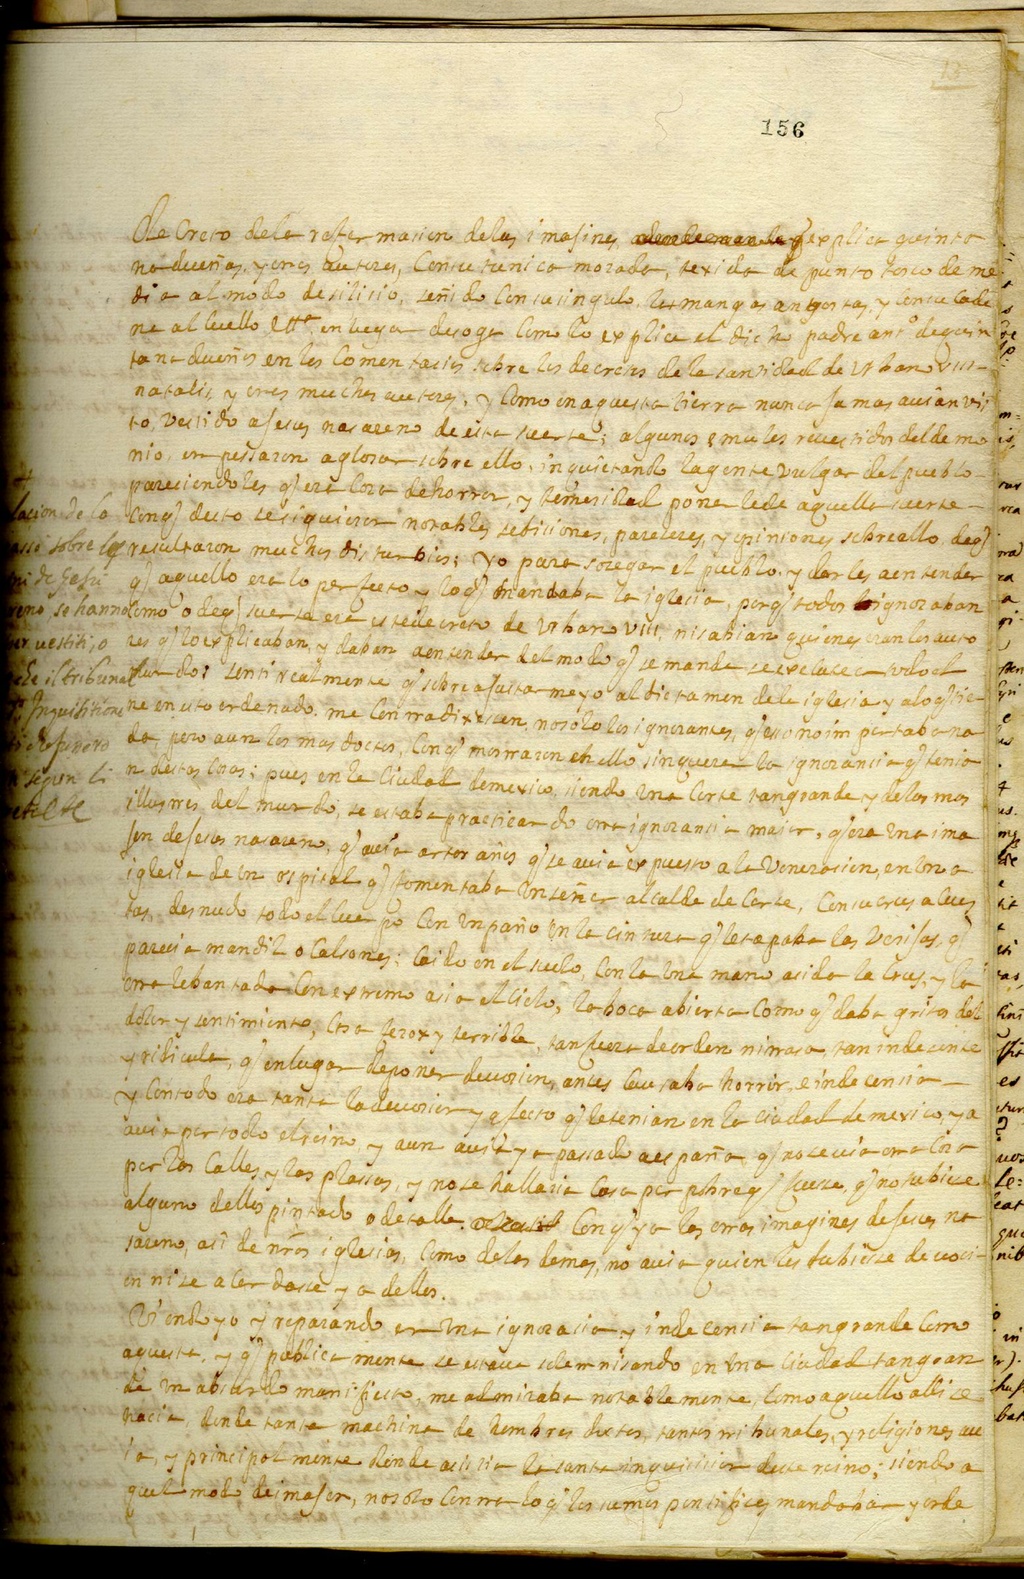 13
156
Decreto dela reformasion delas imasines, q explica quinta
na dueñas, y otros autores, Con su tunica morada, texida de punto tosco de me
dia al modo de silisio, señido Con su singulo, las mangas angostas, y Con su Cade
na al Cuello Ett.ª en lugar de soga Como lo explica el dicho padre ant.º de quin
tana dueñas en los Comentarios sobre los decretos de la santidad de Urbano VIII
natalis, y otros muchos autores, y Como en aquesta tierra nunca jamas auian vis
to, Vestido a Jesus nasareno de esta suerte; algunos emulos reuestidos del demo
nio, enpessaron a glosar sobre ello, inquietando la gente vulgar del pueblo
paresiendoles q era Cosa de horror, y temeridad ponerle de aquella suerte
Con q desto se siguieron notables sedisiones, pareseres, y opiniones sobre ello de q
resultaron muchos disturbios; Yo para sosegar el pueblo, y darles a entender
q aquello era lo perfecto y lo q mandaba la iglesia, porq todos ignoraban
Como o de q suerte era este decreto de Urbano VIII, ni sabian quienes eran los auto
res q lo explicaban, y daban a entender del modo q se manda se execute en todo el
mundo; senti realmente q sobre ajustarme yo al dictamen de la iglesia y a lo q tie
ne en esto ordenado, me Contradixesen, no solo los ignorantes, q esso no importaba na
da, pero aun los mas doctos, Con q mostraron en ello sin querer la ignorancia q tenia
n destas Cosas; pues en la Ciudad de mexico, siendo Una Corte tan grande y de las mas
illustres del mundo, se estaba practicando otra ignoransia maior, q era Una ima
jen de Jesus nasareno, q auia catorse años q se auia expuesto a la Venerasion, en Una
iglesia de Un ospital q fomentaba Un señor alcalde de Corte, Con su crus a Cues
tas, desnudo todo el Cuerpo Con Un paño en la cintura q le tapaba las Verijas, q
paresia mandil o Calsones; Caido en el suelo, Con la Una mano asida la Crus, y la
otra lebantada Con extremo asia el Cielo, la boca abierta Como q daba gritos del
dolor y sentimiento, Cosa ferox y terrible, tan fuera de orden ni trasa, tan indecente
y ridicula, q en lugar de poner deuosion, antes Causaba horror, e indecensia
y Con todo era tanta la deuosion y afecto q le tenian en la Ciudad de mexico, y a
auia por todo el reino, y aun auia ya passado a españa, q no se uia otra Cosa
por las Calles, y las plassas, y no se hallaria Casa por pobre q fuese, q no tubiese
alguno dellos pintado o de talla, Con q ya las otras imagines de Jesus na
sareno, asi de nrãs iglesias, Como de las demas, no auia quien les tubiese deuosi
on ni se acordasse ya dellos.
Viendo yo y reparando en Una ignorasia, y indecensia tan grande Como
aquesta, y q publicamente se estaua solemnisando en Una Ciudad tan gran
de Un absurdo manifiesto, me admiraba notablemente, Como aquello alli se
hacia, donde tanta machina de hombres doctos, tantos tribunales, y religiones au
ia, y principalmente donde asistia la santa inquisision deste reino; siendo a
quel modo de imajen, no solo Contra lo q los sumos pontifises mandaban y orde